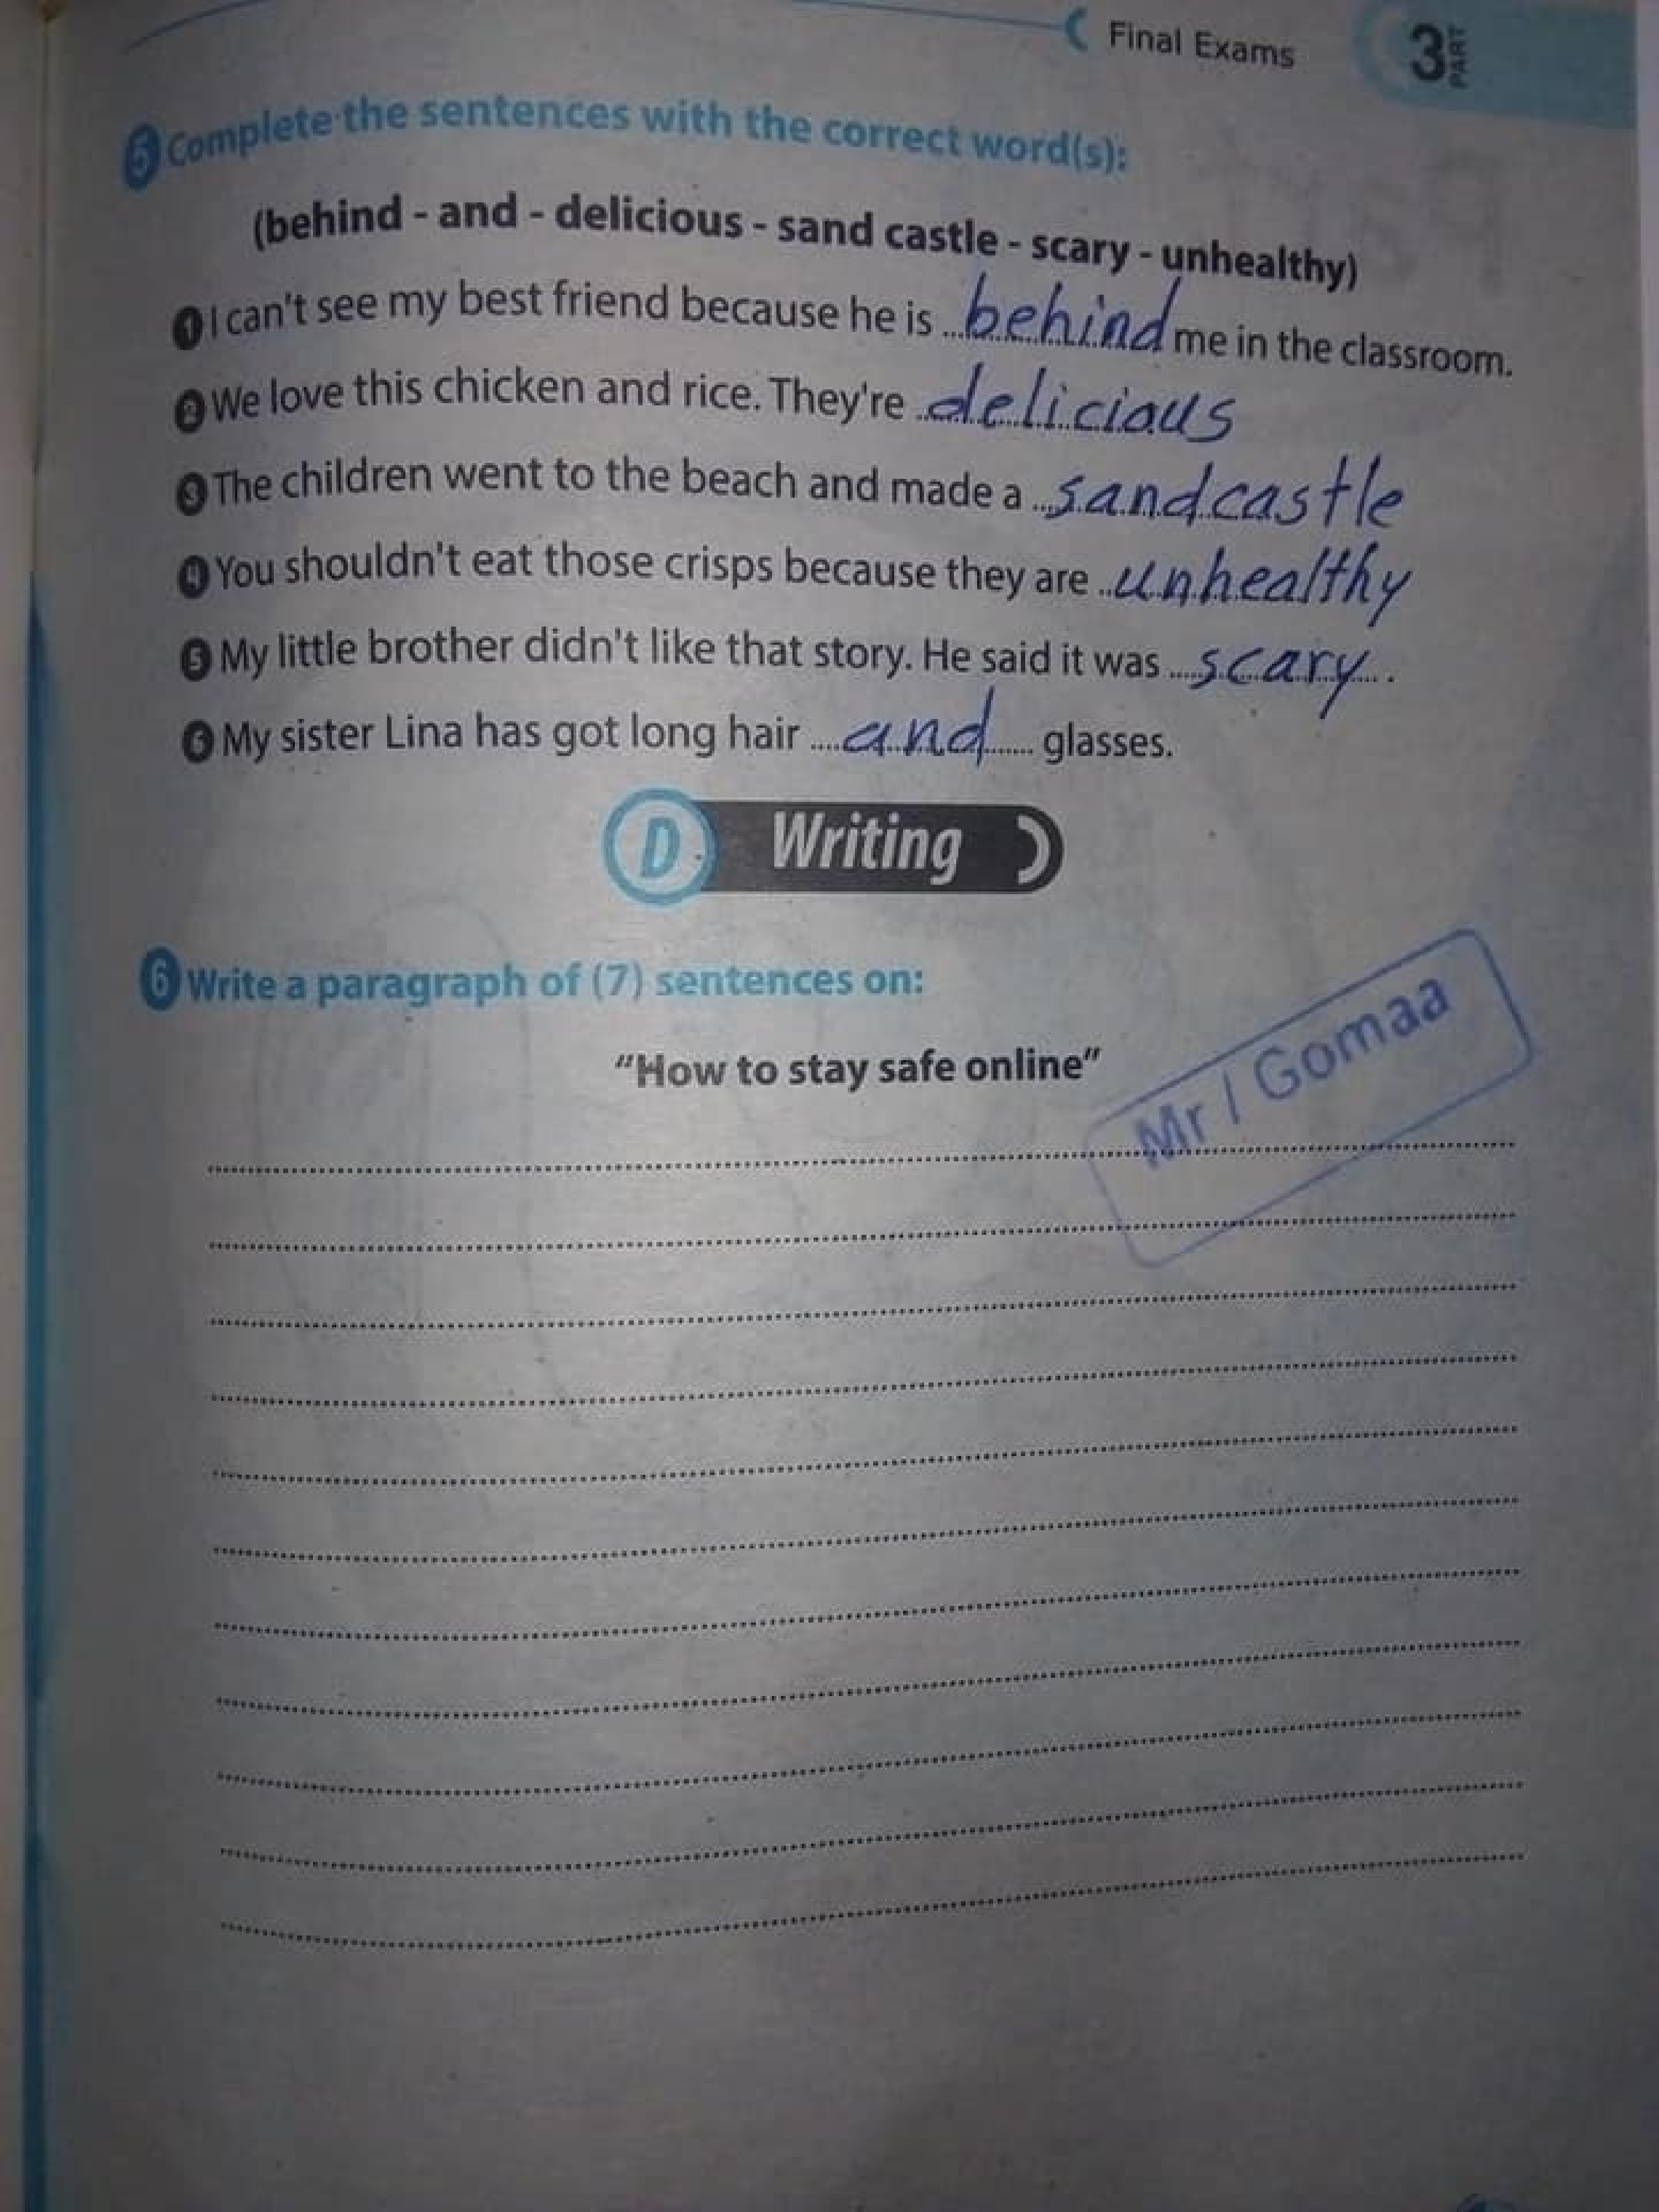 Final Exams
3 PART
5 Complete the sentences with the correct word(s):
(behind - and - delicious - sand castle - scary - unhealthy)
1 I can't see my best friend because he is ...behind me in the classroom.
2 We love this chicken and rice. They're ..delicious
3 The children went to the beach and made a ...sand castle
4 You shouldn't eat those crisps because they are ..unhealthy
5 My little brother didn't like that story. He said it was ....scary... .
6 My sister Lina has got long hair ....and...... glasses.
D Writing
6 Write a paragraph of (7) sentences on:
"How to stay safe online"
Mr / Gomaa